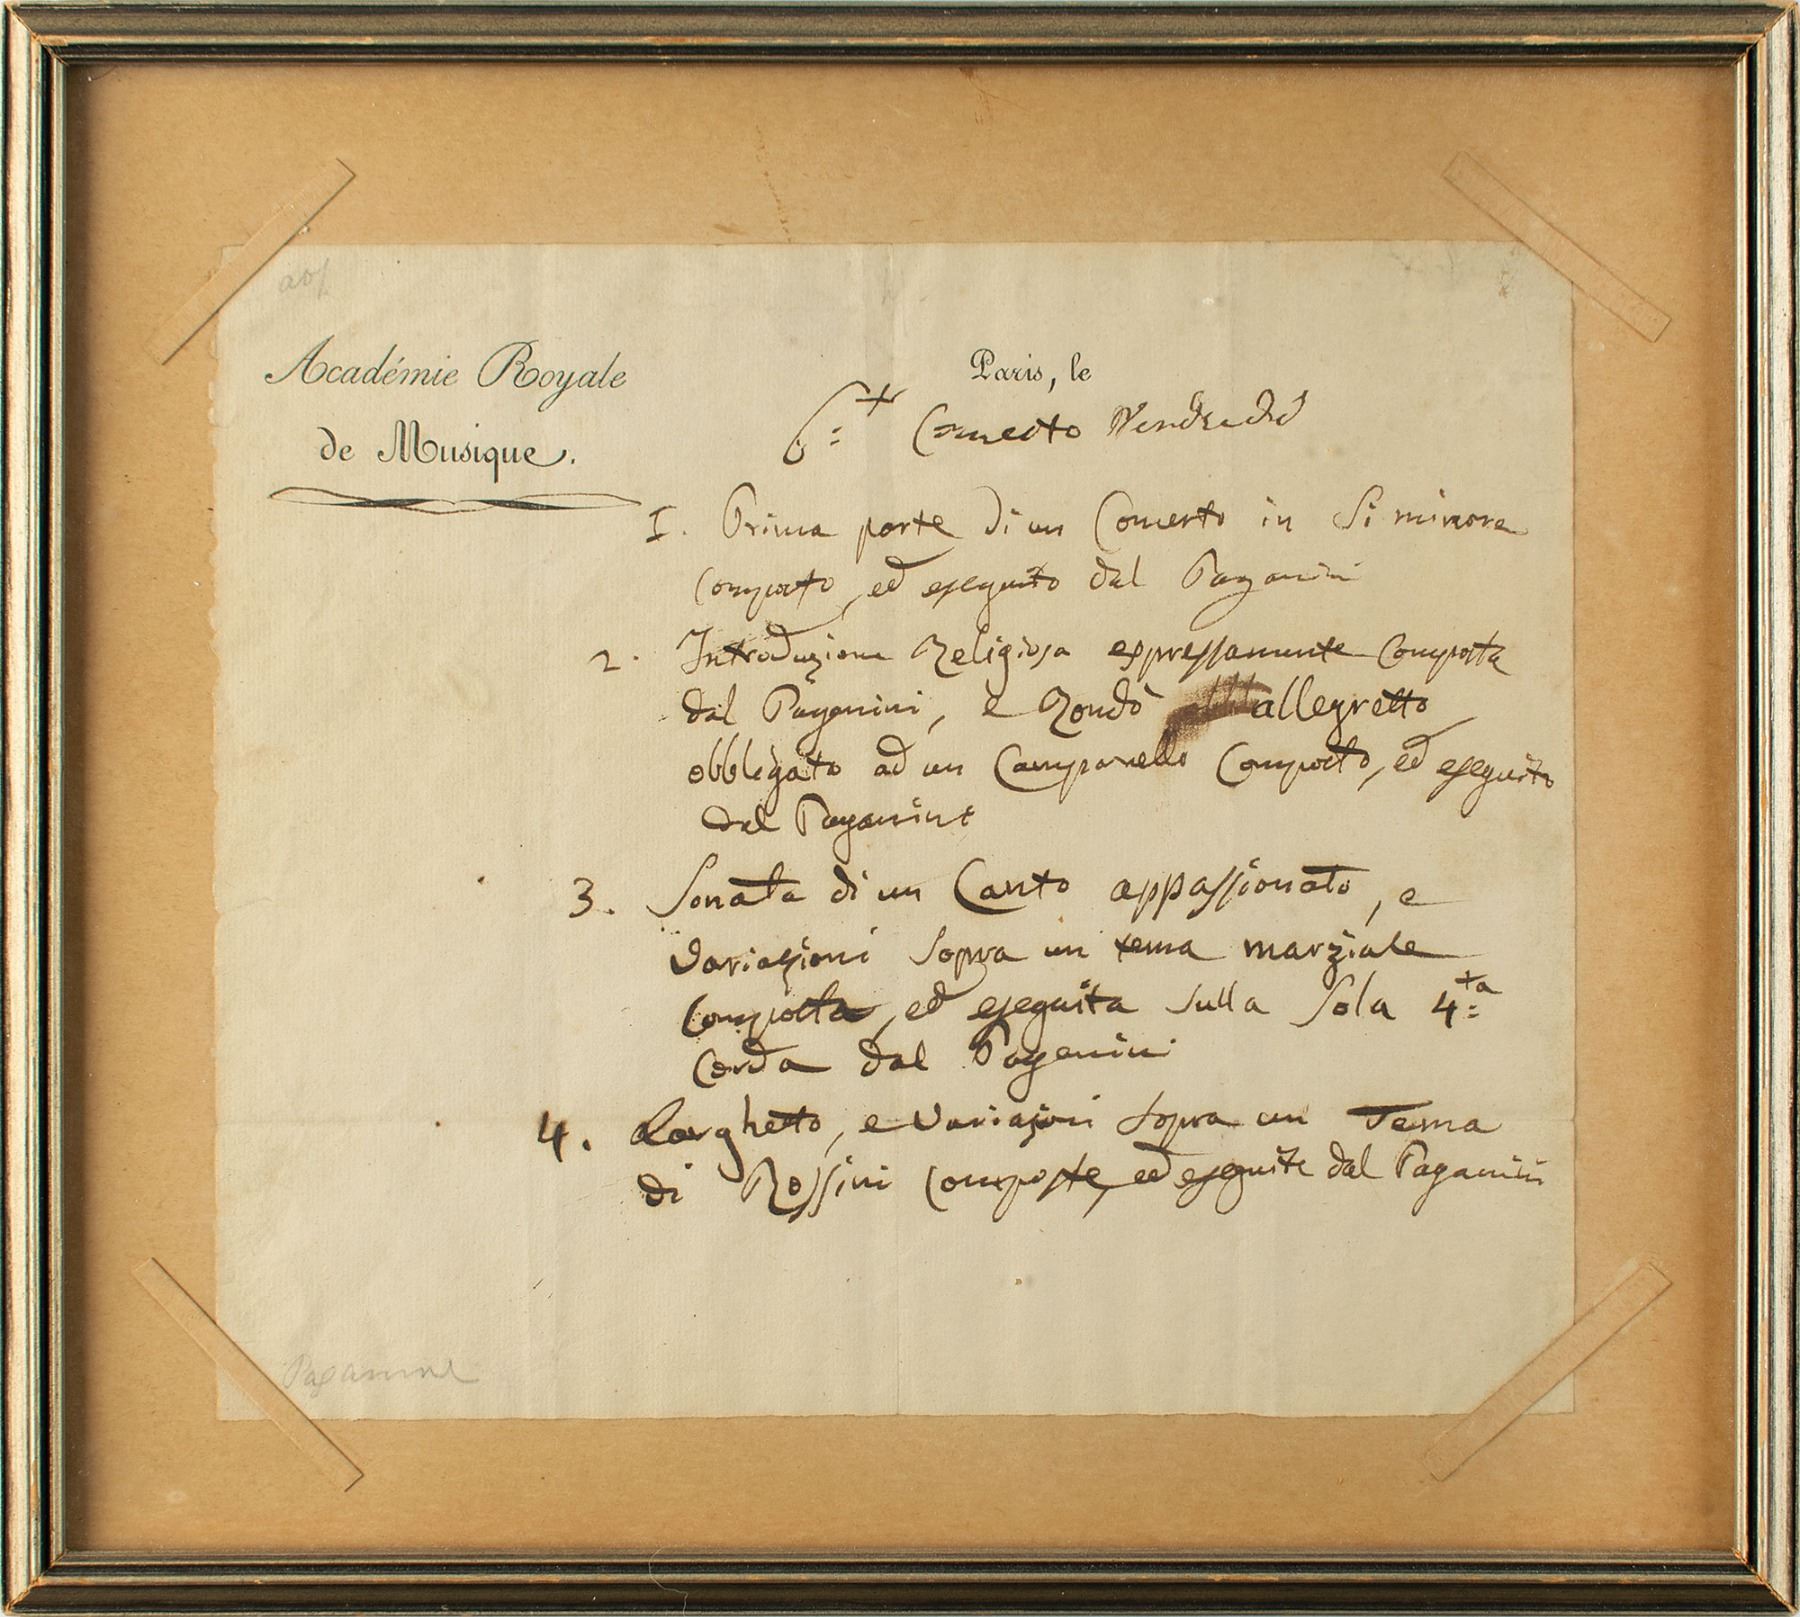 Académie Royale
de Musique.
Paris, le
6:t Concerto Vendredi
1. Prima parte di un Concerto in Si minore
Composto, ed eseguito dal Paganini
2. Introduzione Religiosa espressamente Composta
dal Paganini, e Rondò allegretto
obbligato ad un Campanello Composto, ed eseguito
dal Paganini
3. Sonata di un Canto appassionato, e
Variazioni Sopra un tema marziale
Composta, ed eseguita Sulla Sola 4:ta
Corda dal Paganini
4. Larghetto, e Variazioni Sopra un Tema
di Rossini Composte, ed eseguite dal Paganini
Paganini